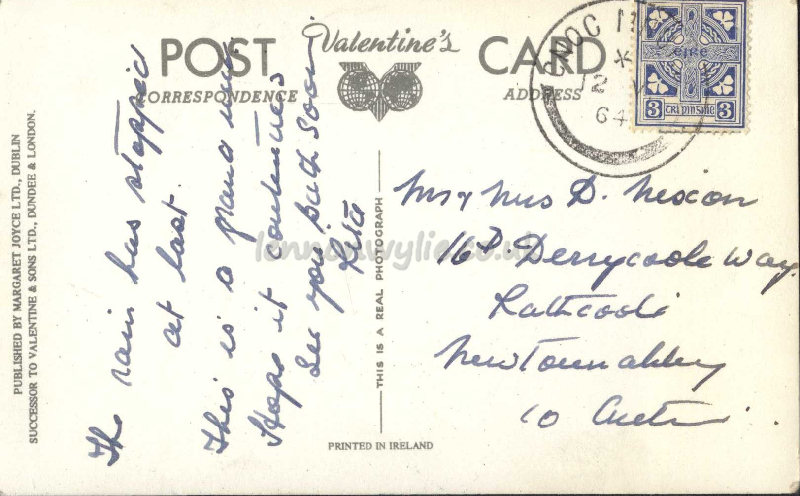 POST Valentine's CARD
CORRESPONDENCE ADDRESS
PUBLISHED BY MARGARET JOYCE LTD., DUBLIN
SUCCESSOR TO VALENTINE & SONS LTD., DUNDEE & LONDON.
The rain has stopped
at last.
This is a grand week
Hope it continues
See you both soon
Rita
THIS IS A REAL PHOTOGRAPH
PRINTED IN IRELAND
CNOC
12 V
64
éire
3 TRÍ PINSINE 3
Mr & Mrs D. Nixon
16D. Derrycoole Way
Rathcoole
Newtownabbey
Co Antrim
lennonwylie.co.uk